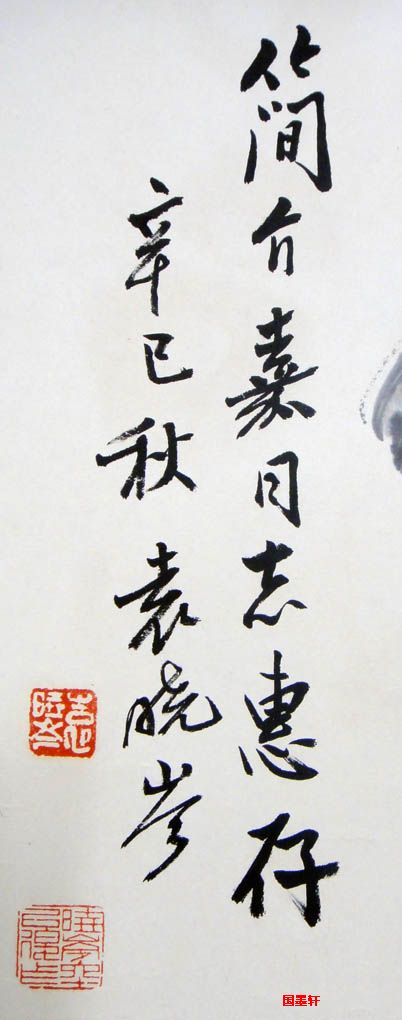 简介嘉同志惠存
辛巳秋袁晓岑
国墨轩